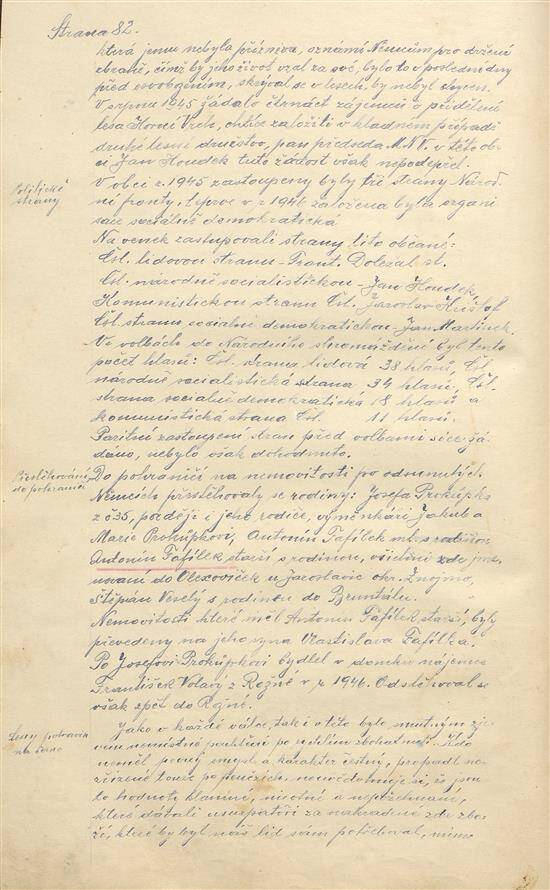 Strana 82.
která jemu nebyla přízniva, oznámí Němcům pro držení
zbraně, čímž by jeho život vzal za své, bylo to v poslední dny
před osvobozením, skrýval se v lesech, by nebyl chycen.
V srpnu 1945 žádalo čtrnáct zájemců o přidělení
lesa Horní Vrch, chtíce založiti v kladném případě
druhé lesní družstvo, pan předseda M.N.V. v této ob-
ci Jan Houdek tuto žádost však nepodepřel.
Politické
strany
V obci r. 1945 zastoupeny byly tři strany Národ-
ní fronty, teprve v r 1946 založena byla organi
sace sociálně demokratická
Na venek zastupovali strany tito občané:
Čsl. lidovou stranu - Frant. Doležal st.
Čsl. národně socialistickou - Jan Houdek
Komunistickou stranu Čsl. Jaroslav
Čsl. stranu sociálně demokratickou - Jan Martinek.
Ve volbách do Národního shromáždění byl tento
počet hlasů: Čsl. strana lidová 38 hlasů, Čsl.
národně socialistická strana 34 hlasů, Čsl.
strana sociálně demokratická 18 hlasů a
komunistická strana Čsl. 11 hlasů.
Paritní zastoupení stran před volbami sice žá-
dáno, nebylo však dohodnuto.
Přestěhování
do pohraničí
Do pohraničí na nemovitosti po odsunutých
Němcích přestěhovaly se rodiny: Josefa Prokůpka
z č 35, později i jeho rodiče, výměnkáři Jakub a
Marie Prokůpkovi, Antonín Fafílek ml. s rodinou
Antonín Fafílek starší s rodinou, všichni zde jme-
novaní do Olexoviček u Jaroslavic okr. Znojmo,
Štěpán Veselý s rodinou do Bruntálu.
Nemovitosti které měl Antonín Fafílek starší, byly
převedeny na jeho syna Vlastislava Fafílka.
Po Josefovi Prokůpkovi bydlel v domku nájemce
František Volavý z Rožné v r 1946. Odstěhoval se
však zpět do Rožné.
Ceny potravin
na černo
Jako v každé válce, tak i v této bylo smutným zje-
vem nemístné po rychlém zbohatnutí. Kdo
neměl pevný mysl a karakter čestný, propadl ne-
zřízené touze po penězích, neuvědomuje si, že jsou
to hodnoty klamné, nicotné a
které dávali usurpátoři za nahradu zde zbo-
ží, které by byl náš lid sám potřeboval, mimo